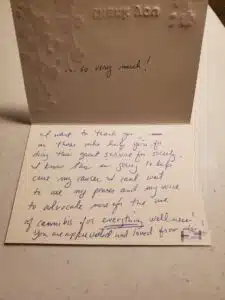 ... so very much!
I want to thank you
on those who help you for
doing this great service for society.
I know this is going to help
cure my cancer. I cant wait
to use my power and my voice
to advocate more for the use
of cannibis for everything wellness!
You are appreciated and loved from